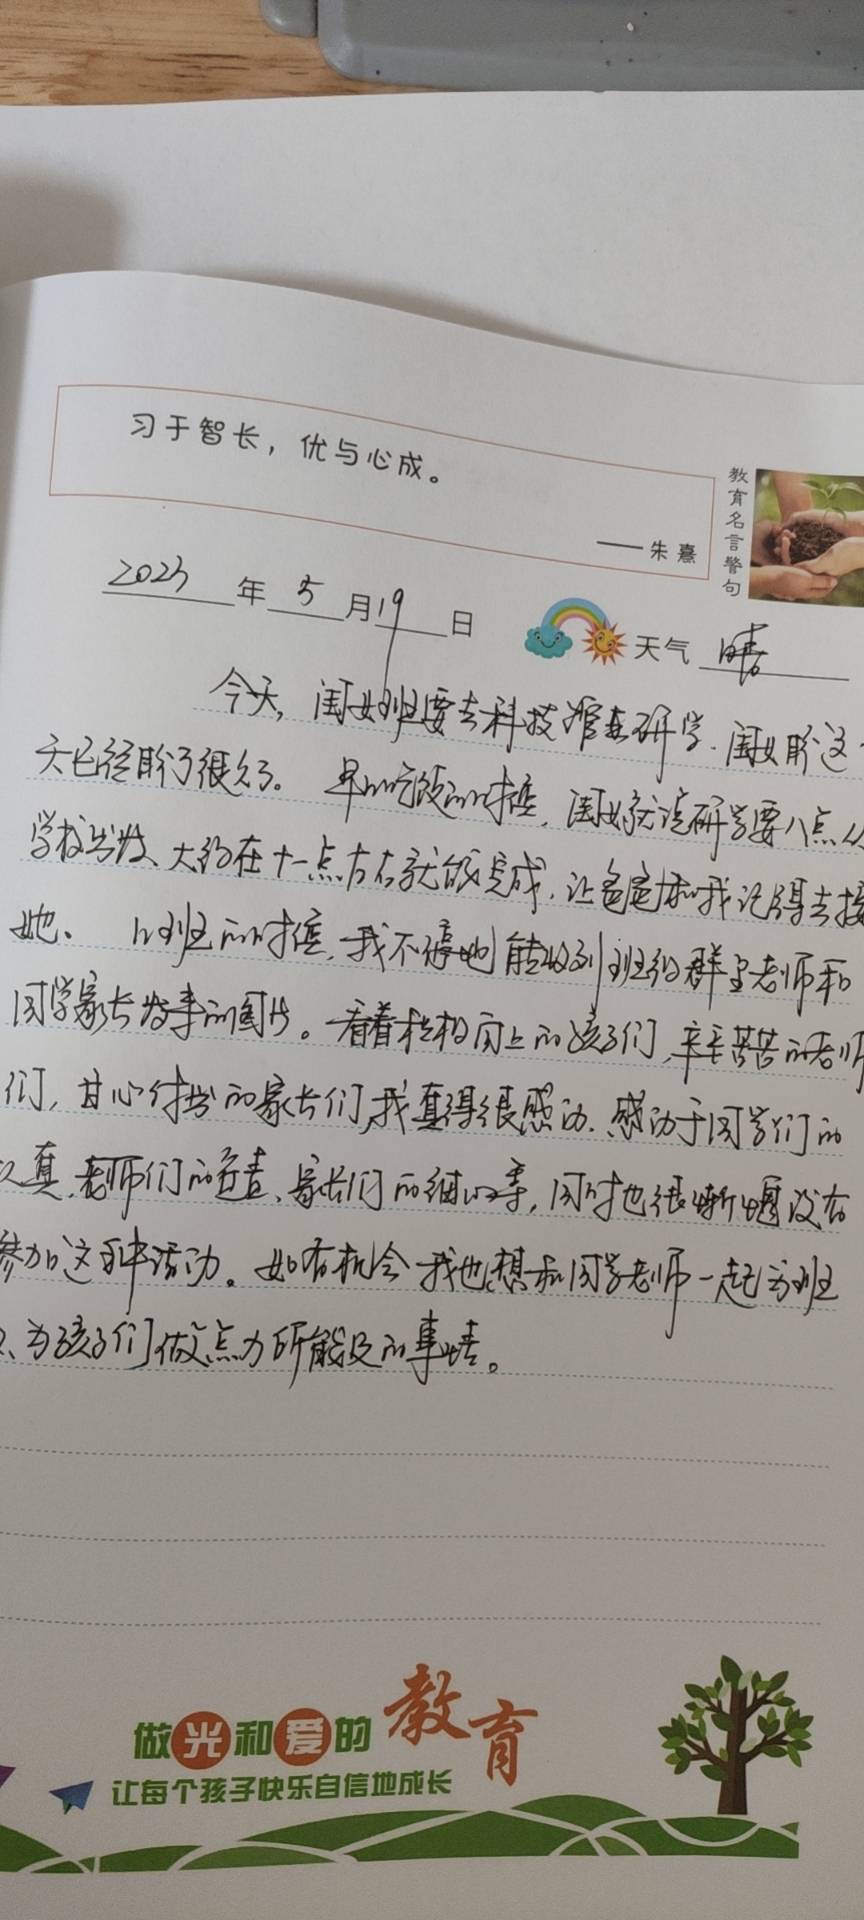 习于智长，优与心成。
——朱熹
教育名言警句
2023年5月19日
天气 晴
今天，闺女班要去科技馆去研学.闺女盼这
天已经盼了很久了。早上吃饭的时候，闺女就说研学要八点从
学校出发、大约在十一点左右就能完成，让爸爸和我记得去接
她、上班的时候，我不停地能收到班级群里老师和
同学家长发来的图片。看着栏杆的孩子们，辛辛苦苦的老师
们，甘心付出的家长们，我真得很感动.感动于同学们的
认真、老师们的负责、家长们的细心等，同时也很惭愧没有
参加这种活动。如有机会我也想和同学老师一起为班
、为孩子们做点力所能及的事情。
做光和爱的教育
让每个孩子快乐自信地成长